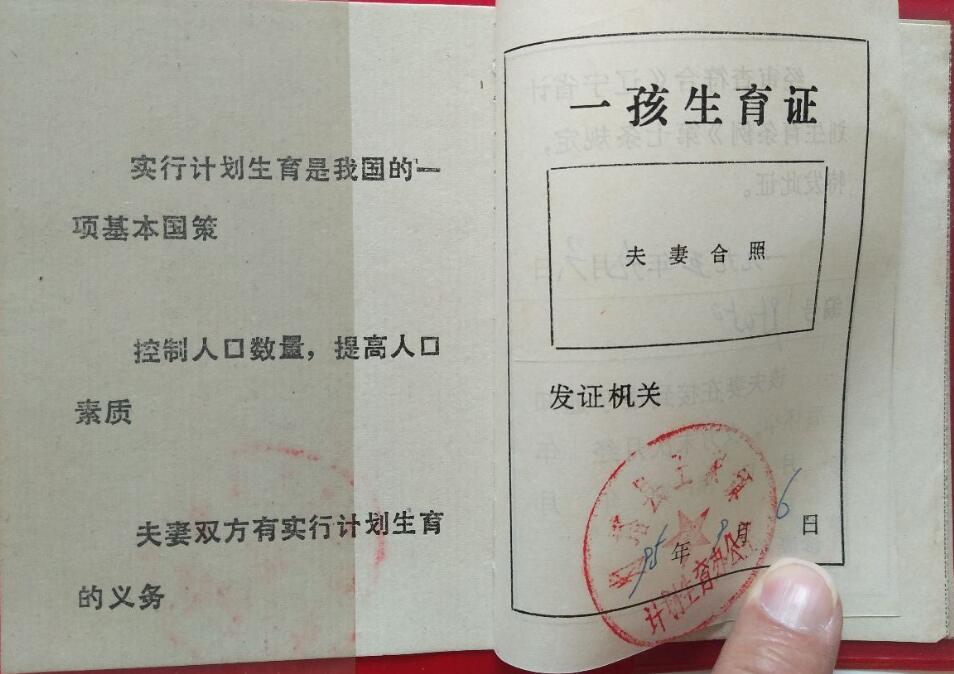 实行计划生育是我国的一
项基本国策
控制人口数量，提高人口
素质
夫妻双方有实行计划生育
的义务
一孩生育证
夫妻合照
发证机关
年 月 6 日
计划生育办公